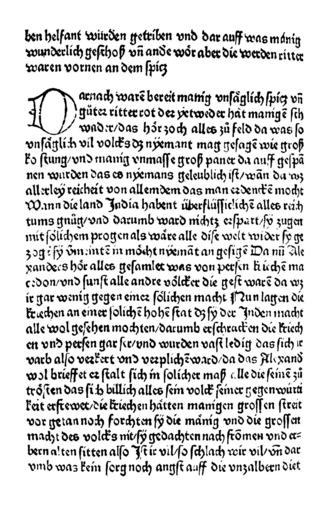 ben helfant würden getriben vnd dar auff was mänig
wunderlich geschoß vñ ande wör aber die werden ritter
waren vornen an dem spicz
Darnach warẽ bereit manig vnsäglich spicz vñ
gůter ritter rot der yetweder hat manigẽ sch
wader/das hör zoch alles zů feld da was so
vnsäglich vil volcks dz nyemant mag gesagẽ wie groß
ko stung/vnd manig vnmasse groß paner da auff gespã
nen wurden das es nyemans geleublich ist/wan da wz
allerley reicheit von allem dem das man erdencken mocht
Wann die land India habent überflüssiclichẽ alles reich
tums gnůg/vnd darumb ward nichtz erspart/sy zugen
mit sölichem progen als wäre alle dise welt wider sy ge
zogẽ/sy in möcht nyemãt an gesigẽ Da nũ Ale
xanders hör alles gesamlet was von persen kriechẽ ma
cedon/vnd sunst alle andre völcker die gest warẽ da wz
ir gar wenig gegen einer sölichen macht Nun lagen die
kriechen an einer solichẽ hohẽ stat dz sy der Inden macht
alle wol gesehen mochten/darumb erschracken die kriech
en vnd persen gar ser/vnd wurden vast ledig das sich ir
varb also verkert vnd verplichẽ ward/da das Alexand
wol brieffet er stalt sich in solicher maß alle die seinẽ zů
trösten das sich billich alles sein volck seiner gegenwürti
keit erfrewet/die kriechen hätten manigen grossen streit
vor getan noch forchten sy die mänig vnd die grossen
macht des volcks nit/sy gedachten nach frömen vnd er-
bern alten sitten also Ist ir vil/so schlach wir vil/vñ dar
vmb was kein sorg noch angst auff die vnzalbern diet